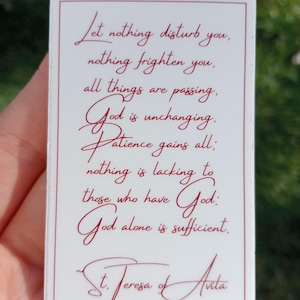 Let nothing disturb you,
nothing frighten you,
all things are passing,
God is unchanging.
Patience gains all;
nothing is lacking to
those who have God;
God alone is sufficient.
~St. Teresa of Avita